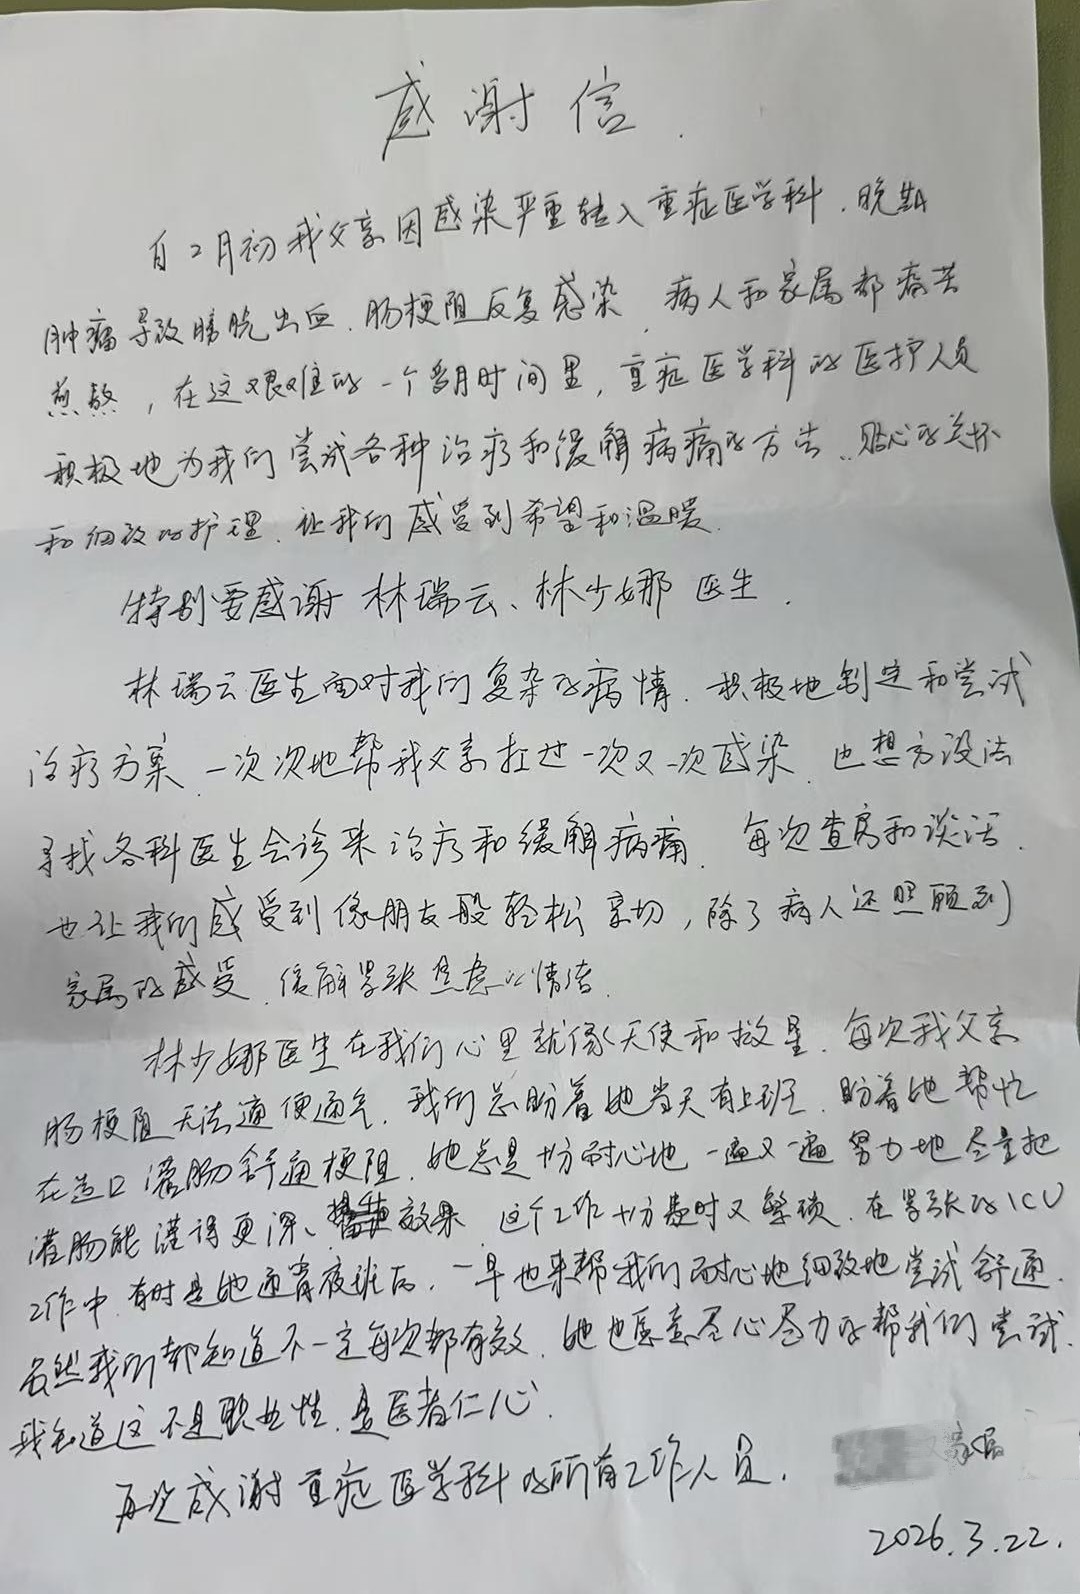 感谢信.
自2月初我父亲因感染严重转入重症医学科.晚期
肿瘤导致膀胱出血、肠梗阻反复感染,病人和家属都痛苦
煎熬,在这艰难的一个多月时间里,重症医学科的医护人员
积极地为我们尝试各种治疗和缓解病痛的方法、贴心的关怀
和细致的护理.让我们感受到希望和温暖.
特别要感谢林瑞云、林少娜医生.
林瑞云医生面对我们复杂的病情.积极地制定和尝试
治疗方案.一次次地帮我父亲扛过一次又一次感染.也想方设法
寻找各科医生会诊来治疗和缓解病痛.每次查房和谈话.
也让我们感受到像朋友般轻松亲切,除了病人还照顾到
家属的感受.缓解紧张焦虑的情绪.
林少娜医生在我们心里就像天使和救星.每次我父亲
肠梗阻无法通便通气.我们总盼着她当天有上班.盼着她帮忙
在造口灌肠舒通梗阻.她总是十分耐心地一遍又一遍努力地尽量把
灌肠能灌得更深、效果.这个工作十分费时又繁琐.在紧张的ICU
工作中.有时是她通宵夜班后.一早也来帮我们耐心地细致地尝试舒通.
虽然我们都知道不一定每次都有效.她也愿意尽心尽力的帮我们尝试.
我知道这不是职业性.是医者仁心.
再次感谢重症医学科的所有工作人员.
家属
2026.3.22.